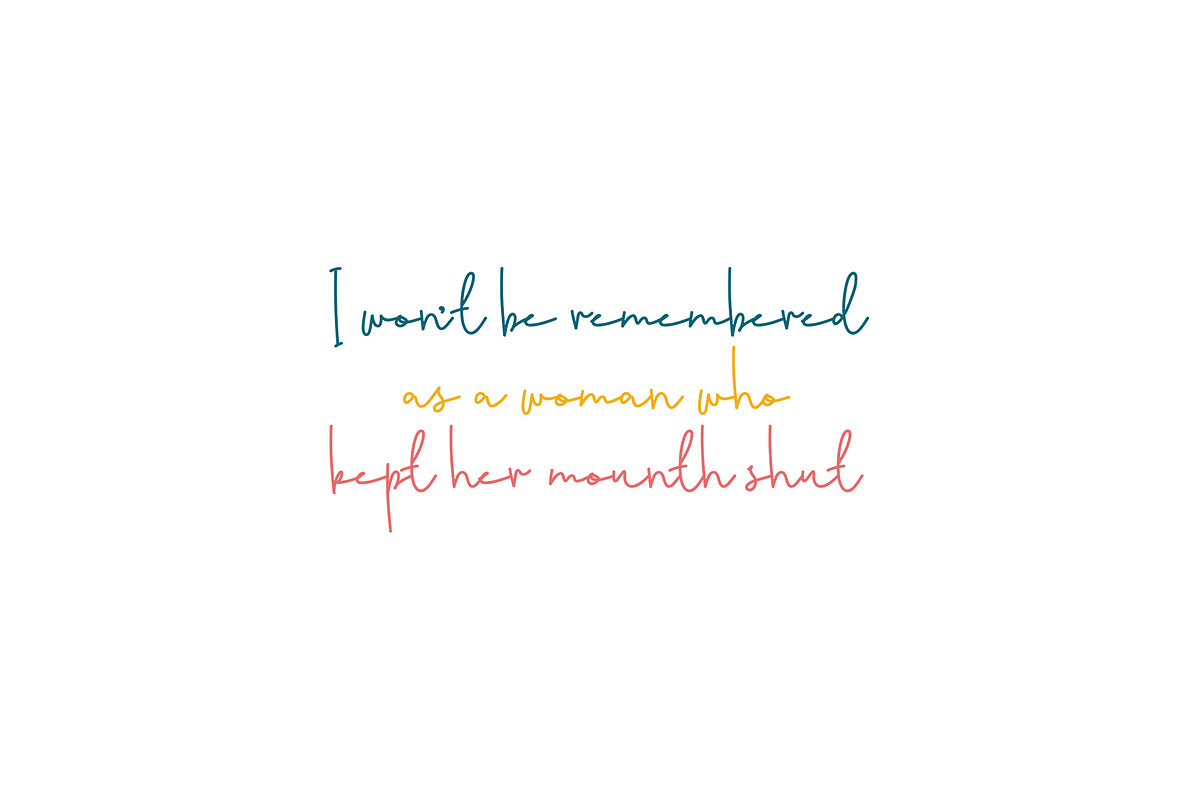 I won't be remembered
as a woman who
kept her mounth shut